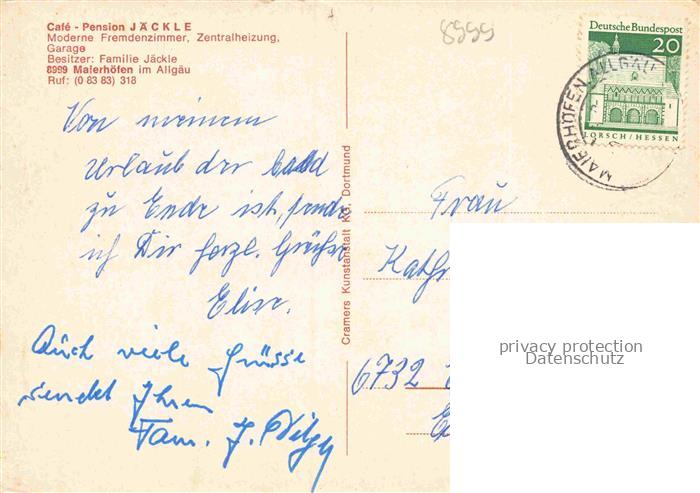 Café - Pension JÄCKLE
Moderne Fremdenzimmer, Zentralheizung,
Garage
Besitzer: Familie Jäckle
8999 Maierhöfen im Allgäu
Ruf: (0 83 83) 318
8999
Deutsche Bundespost
20
LORSCH/HESSEN
MAIERHÖFEN ALLGÄU
Von meinem
Urlaub der bald
zu Ende ist, sende
ich Dir herzl. Grüße
Elise.
Auch viele Grüsse
sendet Ihnen
Fam. J.
Cramers Kunstanstalt KG, Dortmund
Frau
6732
privacy protection
Datenschutz